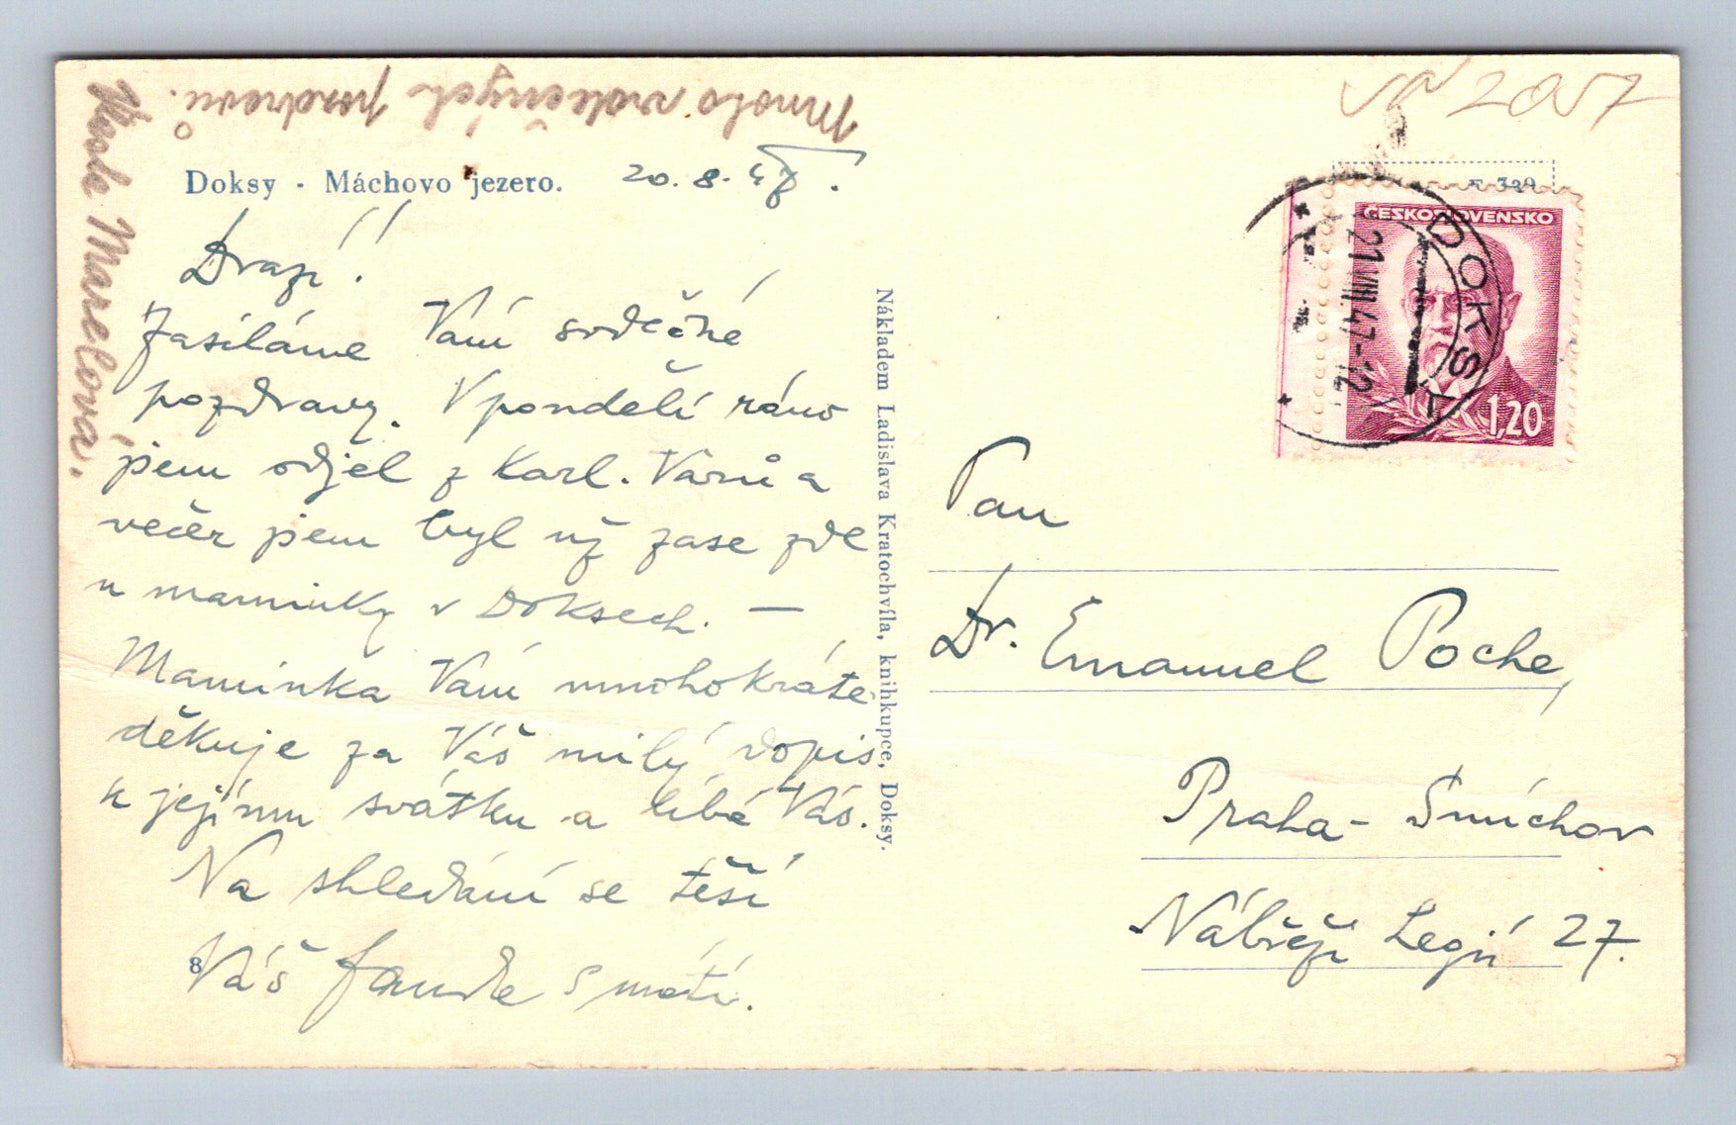 Mnoho srdečných pozdravů.
Marelova.
Doksy - Máchovo jezero. 20. 8. 47.
Drazí!
Zasíláme Vám srdečné
pozdravy. V pondělí ráno
jsem odjel z Karl. Varů a
večer jsem byl už zase zde
u maminky v Doksech. —
Maminka Vám mnohokráte
děkuje za Váš milý dopis
k jejímu svátku a líbá Vás.
Na shledání se těší
Váš s matí.
8
Nákladem Ladislava Kratochvíla, knihkupce, Doksy.
2057
ČESKOSLOVENSKO
1,20
DOKSY
21.VIII.47-12
Pan
Dr. Emanuel Poche,
Praha - Smíchov
Nábřeží Legií 27.